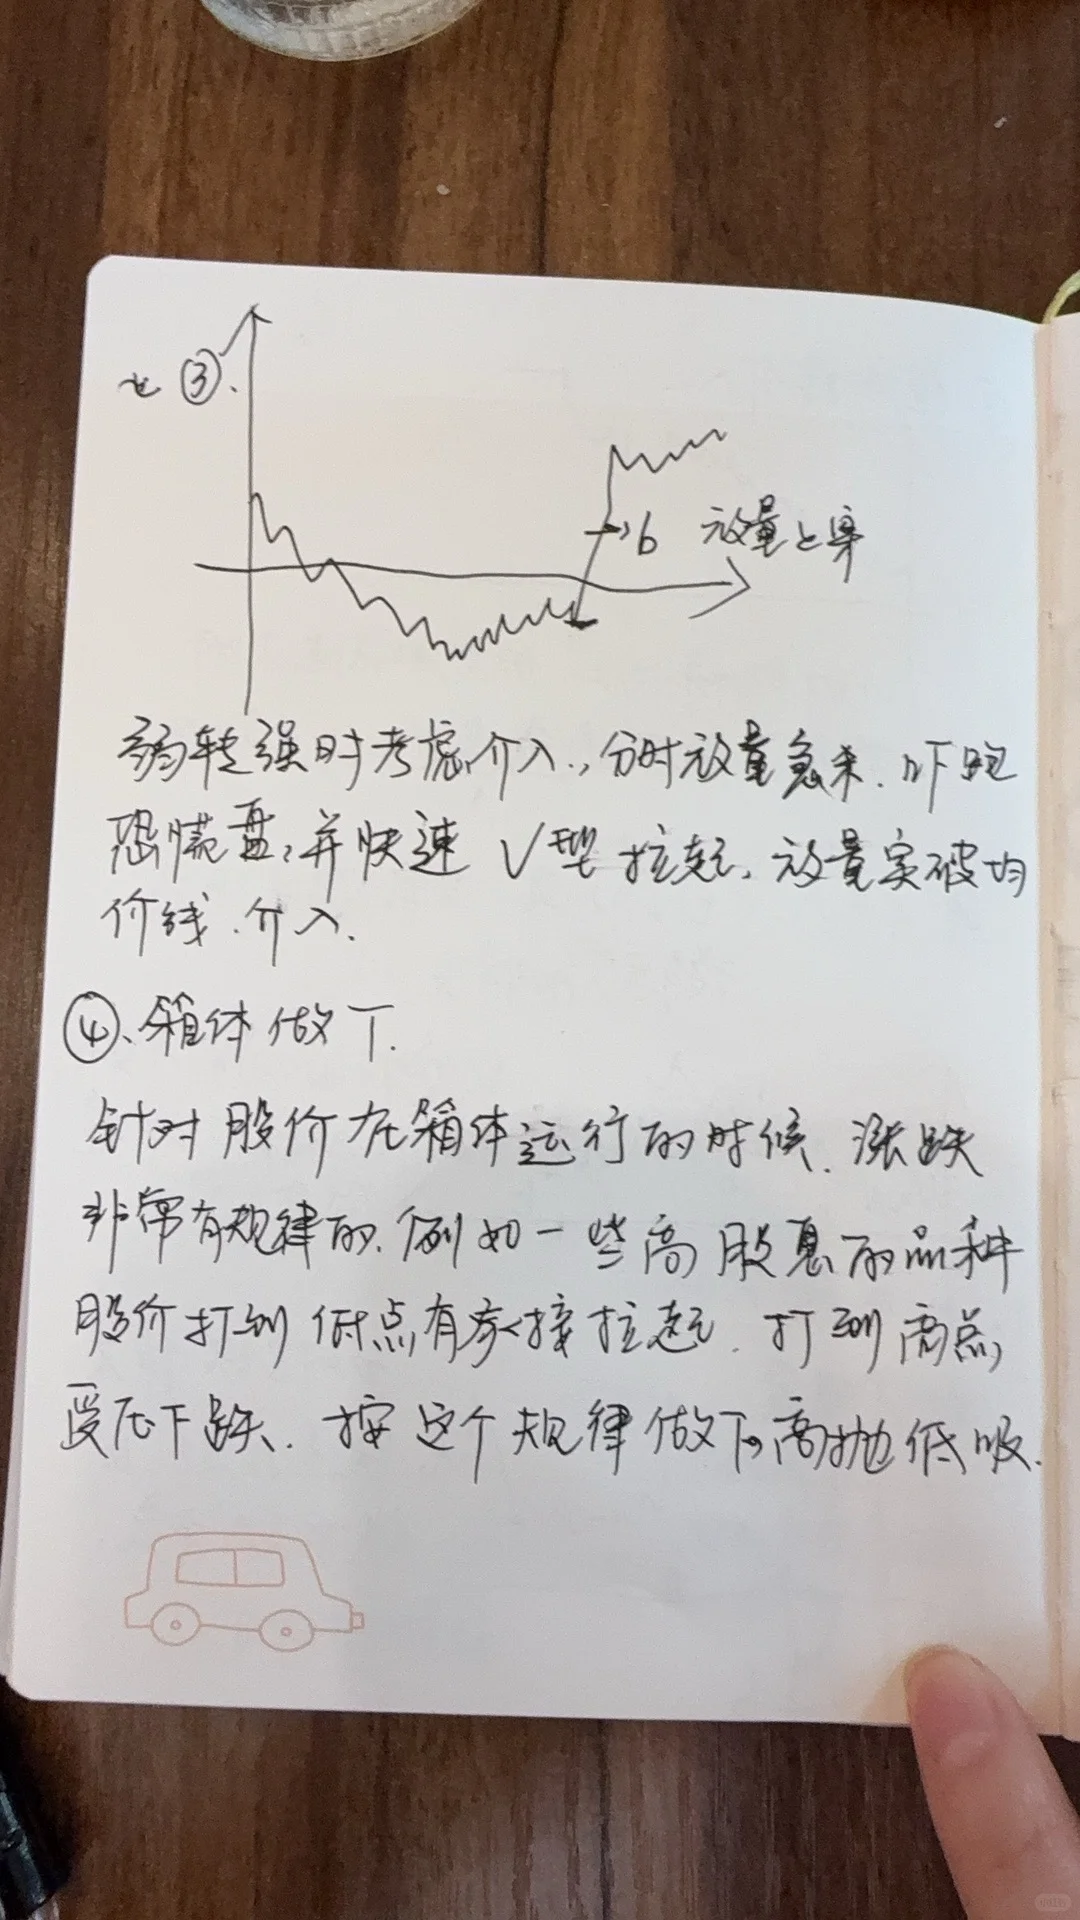 ③.
b 放量上穿
弱转强时考虑介入.,分时放量急杀.吓跑
恐慌盘,并快速 V型拉起,放量突破均
价线.介入.
④、箱体做T.
针对股价在箱体运行的时候.涨跌
非常有规律的.例如一些高股息的品种
股价打到低点有承接拉起.打到高点,
受压下跌.按这个规律做T。高抛低吸.